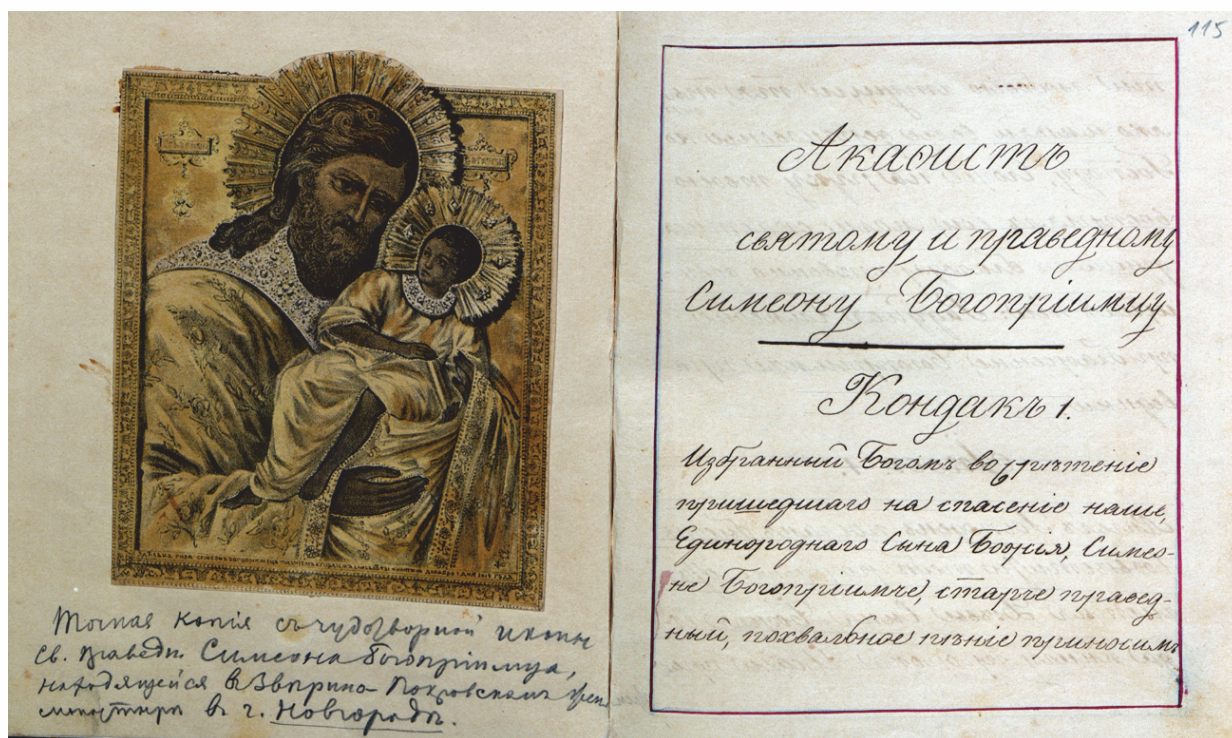 Точная копія съ чудотворной иконы
св. праведн. Симеона Богопріимца,
находящейся въ Звѣрино-Покровскомъ
монастырѣ въ г. Новгородѣ.
115
Акаѳистъ
святому и праведному
Симеону Богопріимцу
Кондакъ 1.
Избранный Богомъ во срѣтеніе
пришедшаго на спасеніе наше,
Единороднаго Сына Божія, Симео-
не Богопріимче, старче правед-
ный, похвальное пѣніе приносимъ